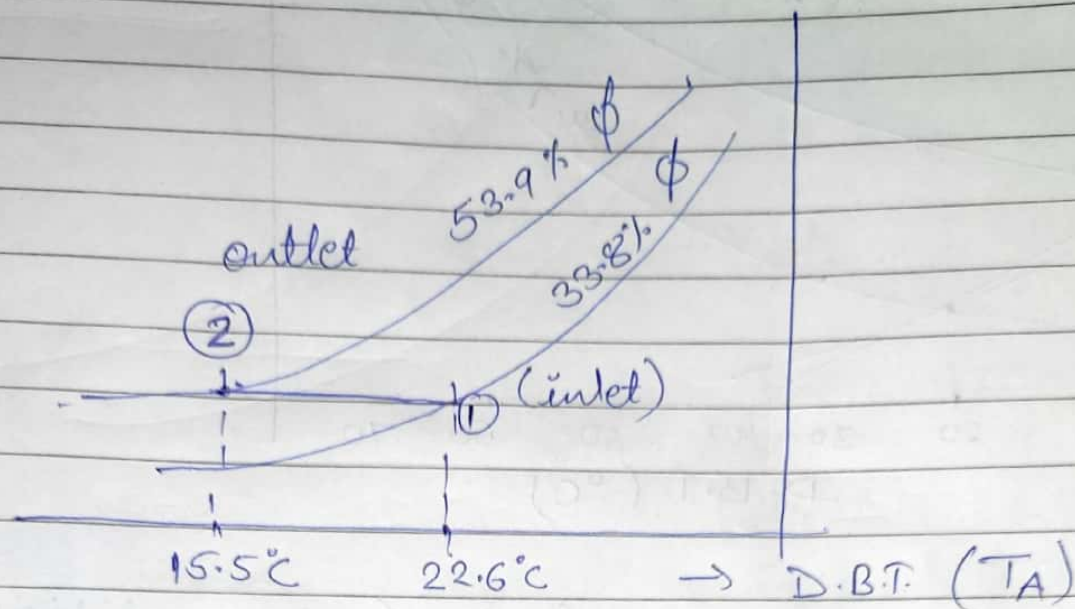 φ
53.9%
φ
33.8%
outlet
②
① (inlet)
15.5°C 22.6°C → D.B.T. (T_A)